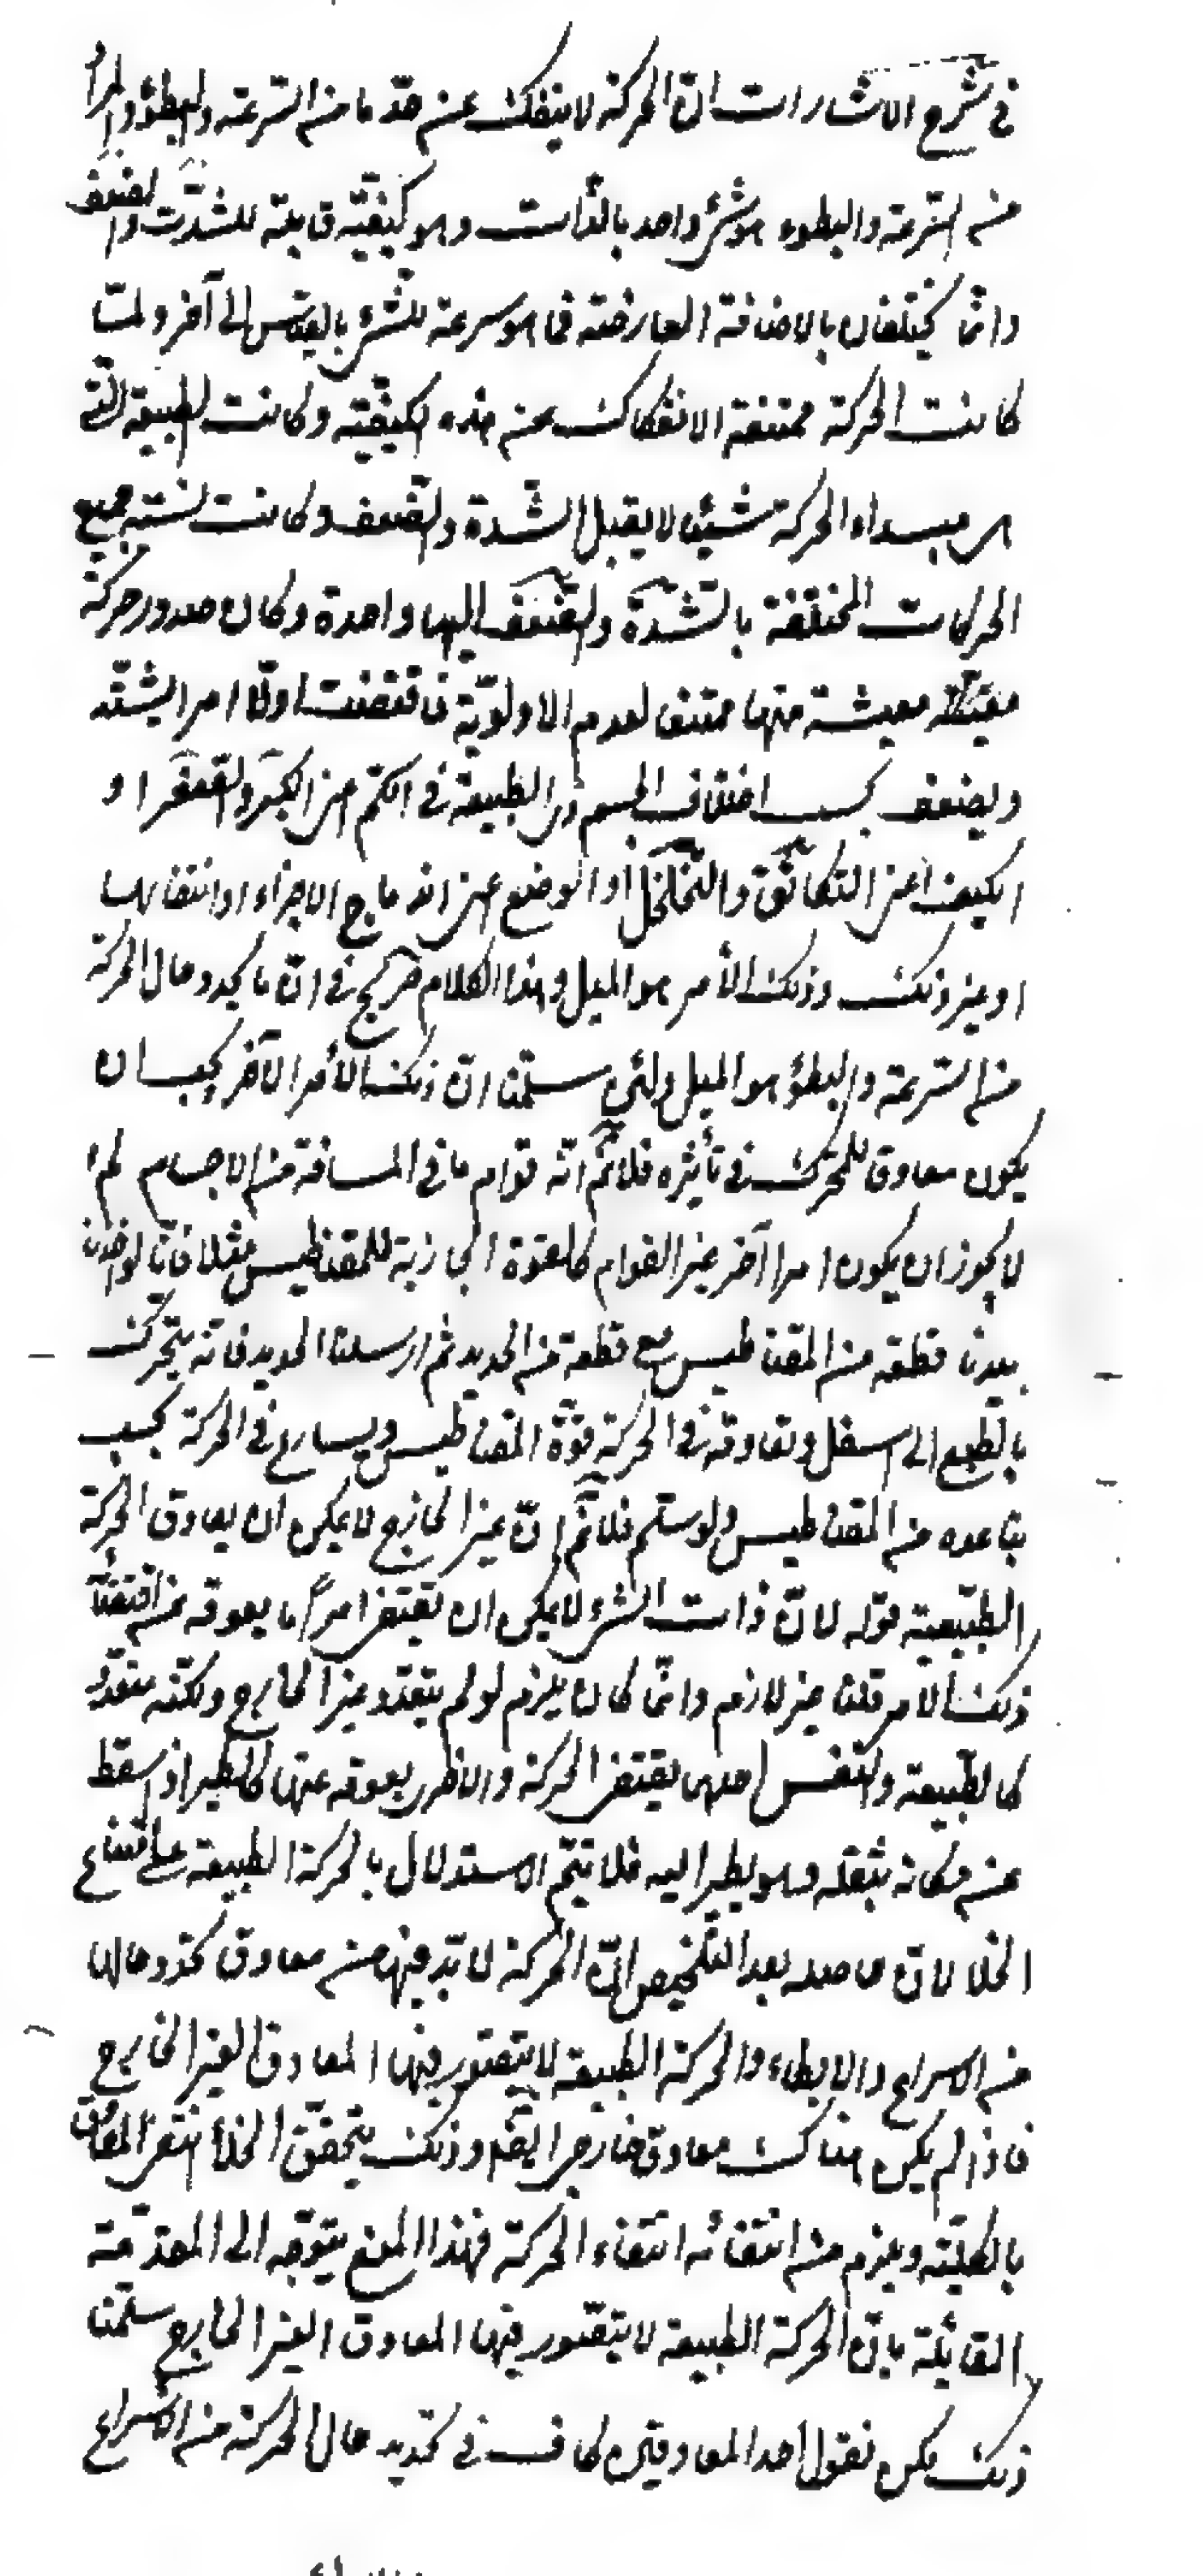 في شرح الاشارات ان الحركة لا ينفك عن حد ما من السرعة والبطؤ والمراد
من السرعة والبطوء هو شئ واحد بالذات وهو كيفيّة قابلة للشدّة والضعف
وانّما يختلفان بالاضافة العارضة فما هو سرعة للشئ بالقياس الى آخر ولمّا
كانت الحركة ممتنعة الانفكاك عن هذه الكيفيّة وكانت الطبيعة التي
هى مبداء الحركة شيئا لا يقبل الشدة والضعف وكانت نسبة جميع
الحركات المختلفة بالشدّة والضعف اليها واحدة وكان صدور حركة
معيّنة منها ممتنعا لعدم الاولويّة فاقتضت اوّلا امرا يشتد
ويضعف بحسب اختلاف الجسم ذى الطبيعة في الكمّ اعنى الكبر والصغر او
الكيف اعنى التكاثف والتخلخل او الوضع اعنى اندماج الاجزاء او انتفاشها
او غير ذلك وذلك الأمر هو الميل وهذا الكلام صريح في انّ ما يحدد حال الحركة
من السرعة والبطؤ هو الميل ولئن سلّمنا انّ ذلك الأمر الآخر يجب ان
يكون معاوق للمحرك في تأثيره فلا نم انّه قوام ما في المسافة من الاجسام لم
لا يجوز ان يكون امرا آخر غير القوام كالقوة الجاذبة للمقناطيس مثلا فانّا لو اخذنا
بيدنا قطعة من المقناطيس مع قطعة من الحديد ثم ارسلنا الحديد فانه يتحرك
بالطبع الى اسفل وتعاوقه في الحركة قوّة المقناطيس ويسارع في الحركة بحسب
تباعده من المقناطيس ولو سلم فلا نم انّ غير الخارج لا يمكن ان يعاوق الحركة
الطبيعية قوله لانّ ذات الشئ لا يمكن ان تقتضى امراً ما يعوقه عن اقتضاء
ذلك الأمر قلنا غير لازم وانّما كان يلزم لو لم يتعدد غير الخارج ولكنّه متعدّد
كالطبيعة والنفس احدهما يقتضى الحركة والاخرى يعوقه عنها كالطير اذا سقط
عن مكانه بثقله وهو يطير اليه فلا يتمّ الاستدلال بالحركة الطبيعة على امتناع
الخلا لانّ حاصله بعد التلخيص انّ الحركة لا بدّ فيها من معاوق يحدّد حالها
من الاسراع والابطاء والحركة الطبيعة لا يتصوّر فيها المعاوق الغير الخارج
فاذا لم يكن هناك معاوق خارجى ايضا وذلك بتحقّق الخلا انتفى المعاوق
بالكليّة ويلزم من انتفائه انتفاء الحركة فهذا المنع يتوجّه الى المقدّمة
القائلة بانّ الحركة الطبيعة لا يتصوّر فيها المعاوق الغير الخارج سلّمنا
ذلك لكن نقول احد المعاوقين كاف في تحديد حال الحركة من الاسراع